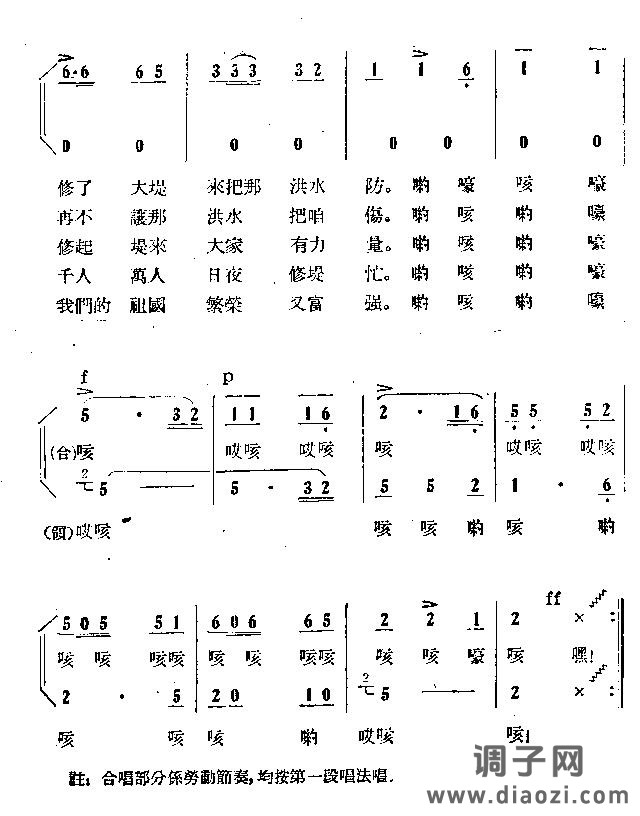 6·6 65 3 3 3 3 2 1 1 6 1 1
0 0 0 0 0 0 0 0
修了 大堤 來把那 洪水 防。喲 嚎 咳 嚎
再不 讓那 洪水 把咱 傷。喲 咳 喲 嚎
修起 堤來 大家 有力 量。喲 咳 喲 嚎
千人 萬人 日夜 修堤 忙。喲 咳 喲 嚎
我們的 祖國 繁榮 又富 强。喲 咳 喲 嚎
f p
5 · 32 11 16 2 · 16 55 52
(合)咳 哎咳 哎咳 咳 哎咳 哎咳
2 5 — 5 · 32 5 5 2 1 · 6
(領)哎咳 咳 咳 喲 咳 喲
ff
505 51 606 65 2 2 1 2 ×
咳 咳 咳咳 咳 咳 咳咳 咳 咳 嚎 咳 嘿!
2 · 5 20 10 2 5 — 2 ×
咳 咳 咳 喲 哎咳 咳!
註: 合唱部分係勞動節奏,均按第一段唱法唱.
调子网
www.diaozi.com